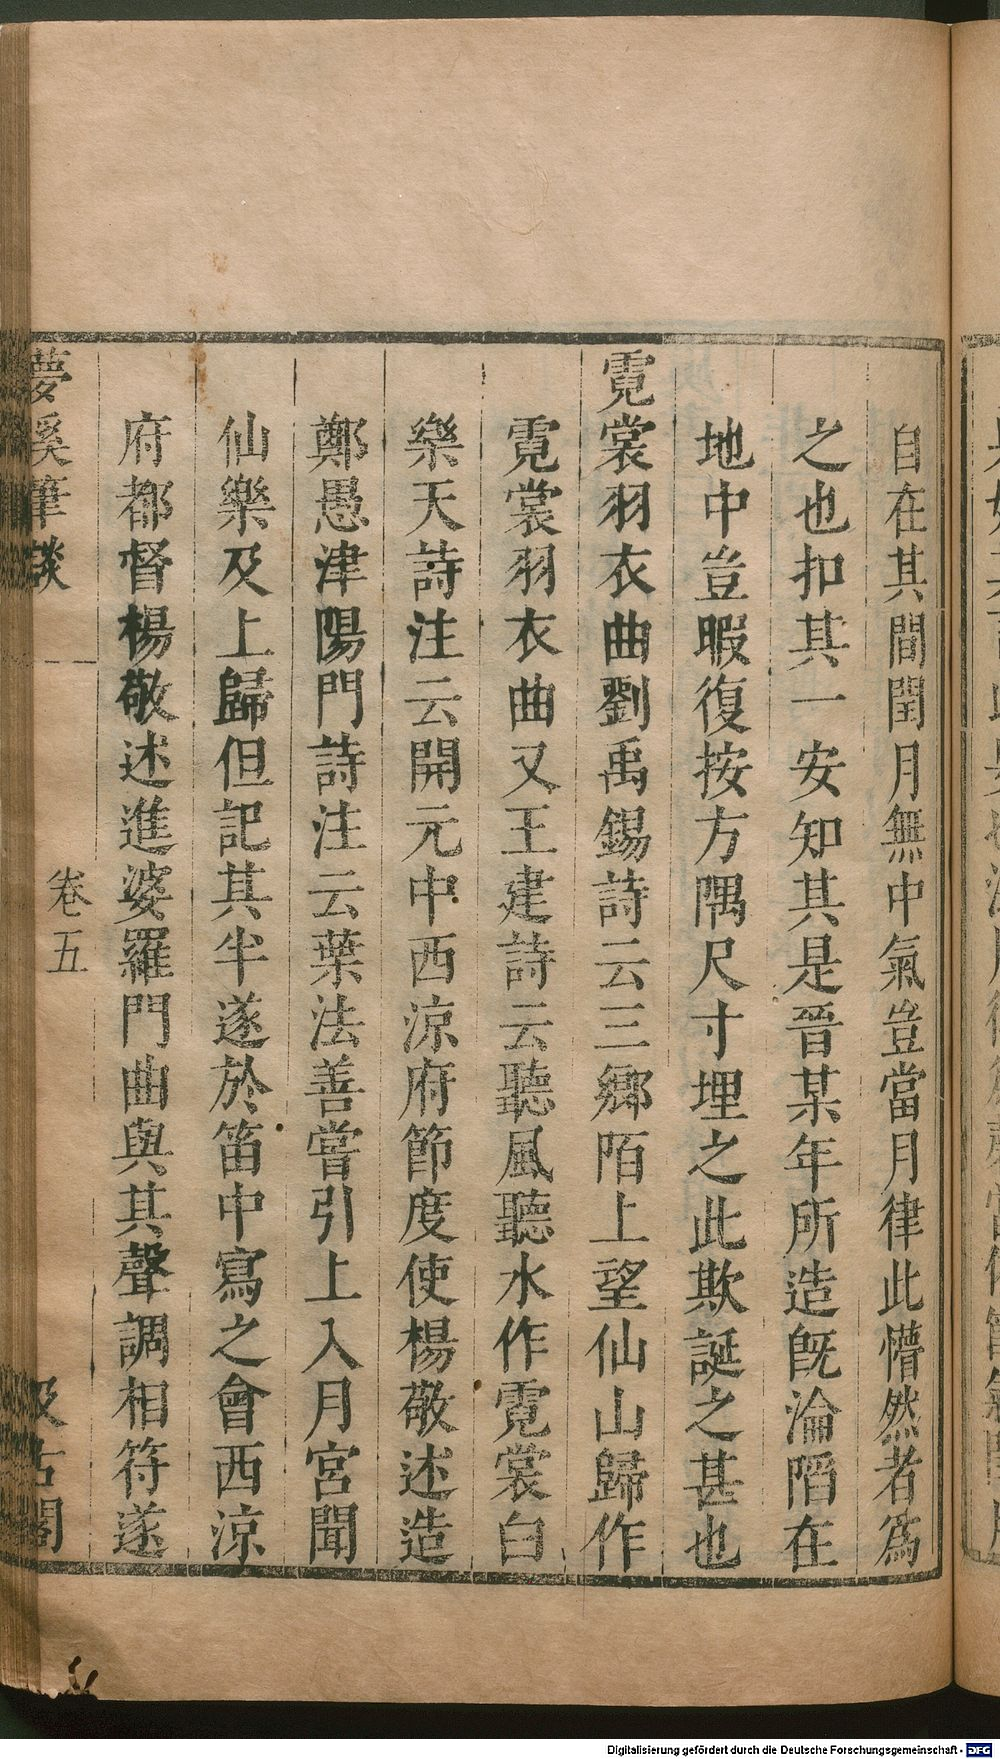 自在其間閏月無中氣豈當月律此懵然者爲
之也扣其一安知其是晉某年所造旣淪䧟在
地中豈暇復按方隅尺寸埋之此欺誕之甚也
霓裳羽衣曲劉禹錫詩云三鄉陌上望仙山歸作
霓裳羽衣曲又王建詩云聽風聽水作霓裳白
樂天詩注云開元中西涼府節度使楊敬述造
鄭愚津陽門詩注云葉法善嘗引上入月宮聞
仙樂及上歸但記其半遂於笛中寫之會西涼
府都督楊敬述進婆羅門曲與其聲調相符遂
夢溪筆談
卷五
汲古閣
Digitalisierung gefördert durch die Deutsche Forschungsgemeinschaft - DFG